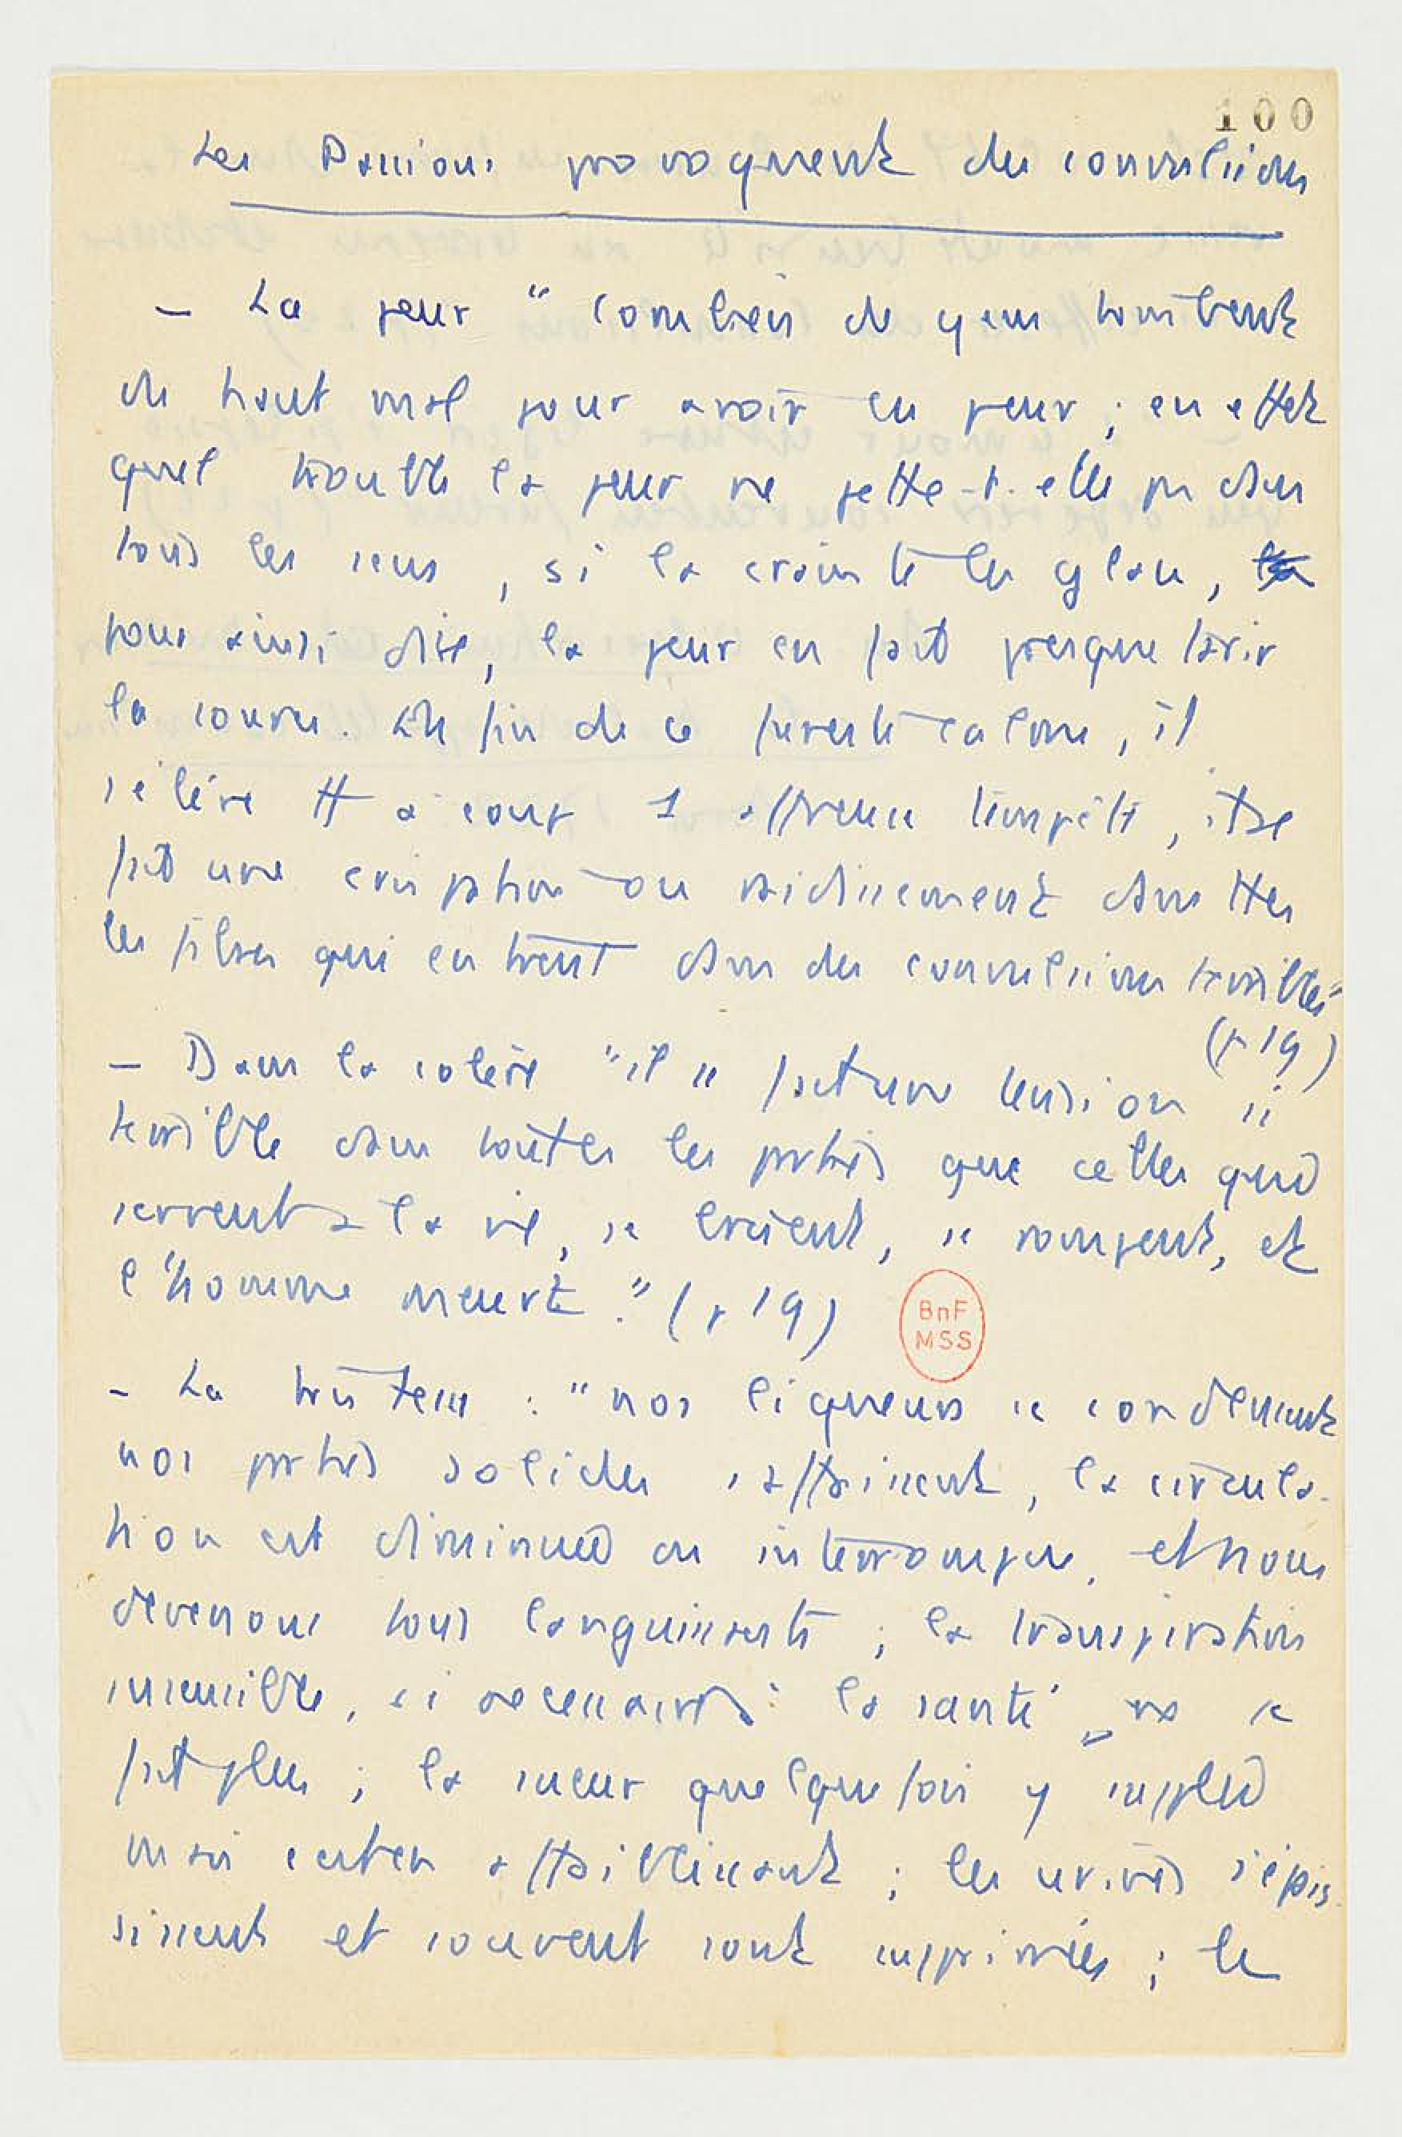 100
Les Passions provoquent des convulsions
- La peur "combien de gens tombent
du haut mal pour avoir eu peur ; en effet
quel trouble la peur ne jette-t-elle pas dans
tous les sens, si la crainte les glace,
pour ainsi dire, la peur en fait presque tarir
la source. A la fin de ce funeste calme, il
s'élève tt à coup 1 affreuse tempête, il se
fait une crispation ou raidissement dans ttes
les fibres qui entrent dans des convulsions terribles"
(p 19)
- Dans la colère "il se fait une tension si
terrible dans toutes les parties que celles qui
servent à la vie, se brisent, se rompent, et
l'homme meurt." (p 19)
BnF
MSS
- La tristesse : "nos liqueurs se condensent
nos parties solides s'affaissent, la circula-
tion est diminuée ou interrompue, et nous
devenons tous languissants ; la transpiration
insensible, si nécessaire à la santé, ne se
fait plus ; la sueur quelquefois y supplée
mais c'est en affaiblissant ; les urines s'épais-
sissent et souvent sont supprimées ; le